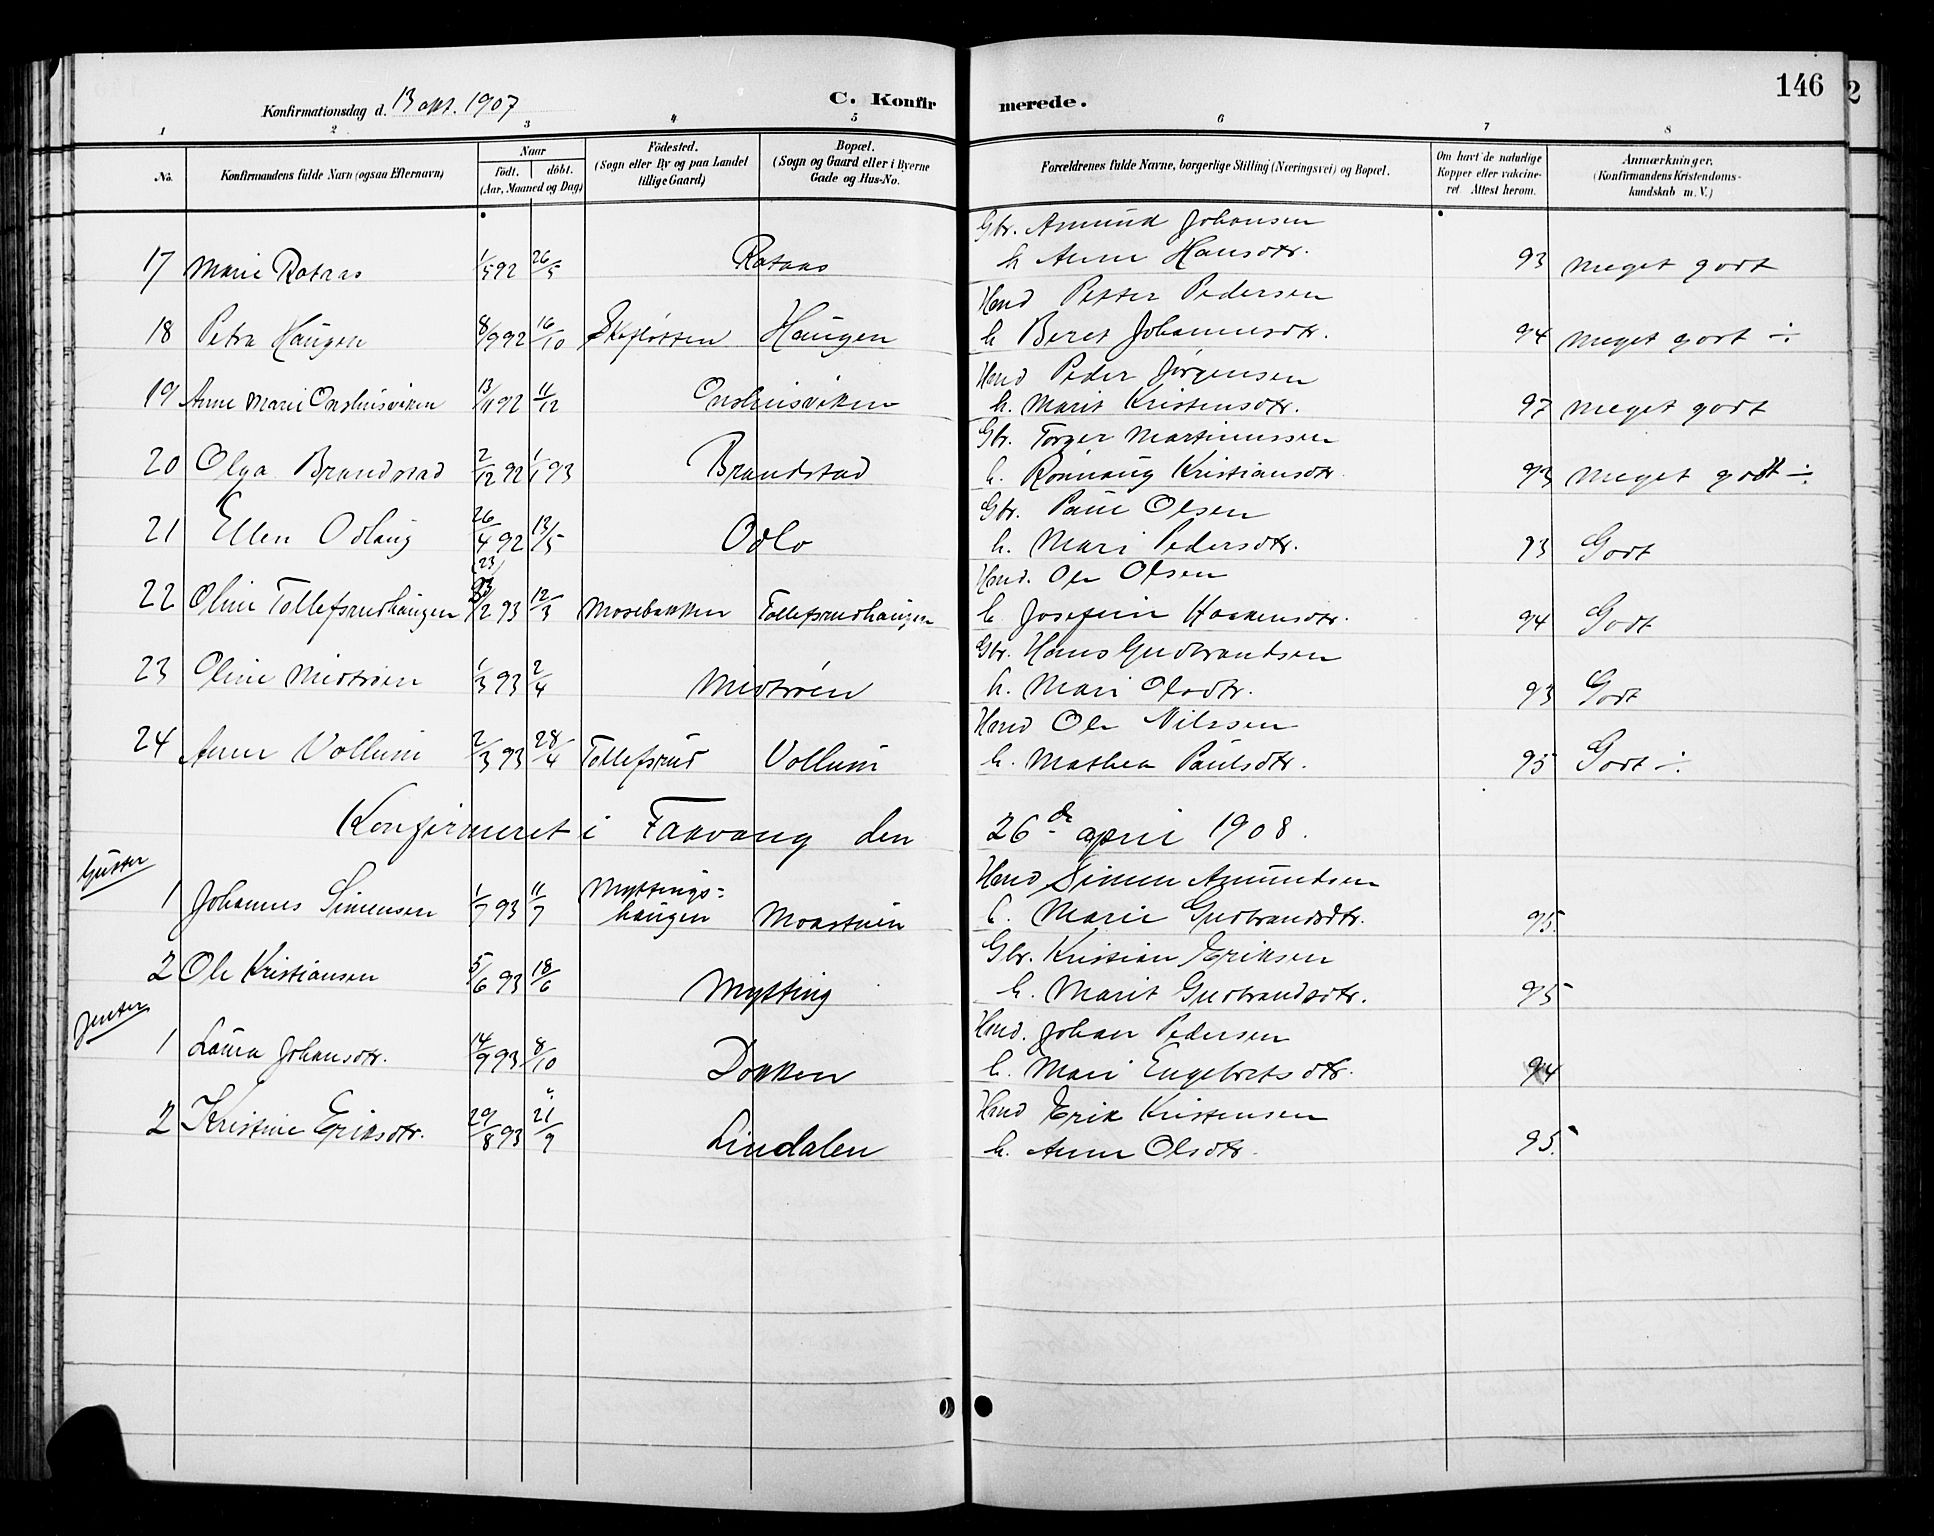 146
2
Konfirmationsdag d. 13 okt. 1907
C. Konfirmerede.
1 2 3 4 5 6 7 8
No.
Konfirmandens fulde Navn (ogsaa Efternavn)
Naar
födt. döbt.
(Aar, Maaned og Dag)
Födested.
(Sogn eller By og paa Landet
tillige Gaard)
Bopæl.
(Sogn og Gaard eller i Byerne
Gade og Hus-No.
Forældrenes fulde Navne, borgerlige Stilling (Næringsvei) og Bopæl.
Om havt de naturlige
Kopper eller vakcine-
ret Attest herom.
Anmærkninger.
(Konfirmandens Kristendoms-
kundskab m. V.)
Gbr. Amund Johansen
17 Marie Rotaas 1/5 92 26/5 Rotaas h Anne Hansdtr. 93 meget godt
Hmd Petter Pedersen
18 Petra Haugen 8/9 92 16/10 Haugen h Beret Johannesdtr. 94 meget godt ÷
Hmd Peder Jørgensen
19 Anne Marie Onshusviken 13/11 92 11/12 Onshusviken h. Marit Kristensdtr. 97 meget godt
Gbr. Torger Martinussen
20 Olga Brandstad 2/12 92 1/1 93 Brandstad h. Rønnaug Kristiansdtr. 93 meget godt ÷
Gbr. Paul Olsen
21 Ellen Odlaug 26/4 92 13/5 Odlo h. Mari Pedersdtr. 93 Godt
(23/
Hmd. Ole Olsen
22 Oline Tollefsrudhaugen /2 93 12/3 Mosebakken Tollefsrudhaugen h Josefine Haakensdtr. 94 Godt
Gbr. Hans Gudbrandsen
23 Oline Midtrøen 1/3 93 2/4 Midtrøen h. Mari Olsdtr. 93 Godt
Hmd Ole Nilssen
24 Anne Vollum 2/3 93 28/4 Tollefsrud Vollum h. Mathea Paulsdtr. 95 Godt ÷
Konfirmeret i Faavang den 26de april 1908.
Gutter
Hmd Simen Amundsen
1 Johannes Simensen 1/7 93 11/7 Myttings=
haugen Moastuen h. Marie Gudbrandsdtr. 95.
Gbr. Kristian Eriksen
2 Ole Kristiansen 5/6 93 18/6 Mytting h. Marit Gudbrandsdtr. 95
Jenter
Hmd. Johan Pedersen
1 Laura Johansdtr. 14/9 93 8/10 Dokken h. Mari Engebretsdtr. 94
Hmd Erik Kristensen
2 Kristine Eriksdtr. 29/8 93 21/9 Lindalen h. Anne Olsdtr. 95.